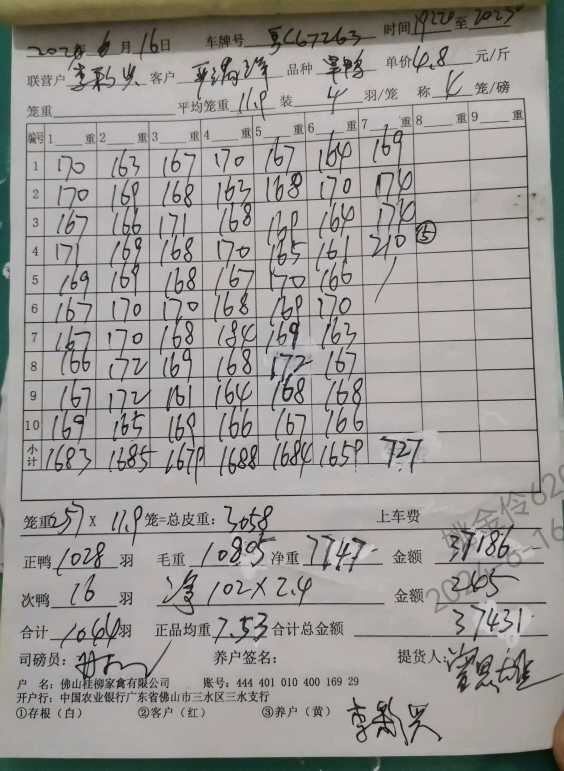 2024年6月16日 车牌号 粤C67263 时间1922至2025
联营户 李彩兴 客户 品种 单鸭 单价4.8 元/斤
笼重 平均笼重 11.9 装 4 羽/笼 称 4 笼/磅
编号 1 重 2 重 3 重 4 重 5 重 6 重 7 重 8 重 9 重
1 170 163 167 170 167 164 169
2 170 169 168 163 168 170 174
3 167 166 171 168 169 164 174
4 171 169 168 170 165 161 210 ⑤
5 169 169 168 167 170 166
6 167 170 170 168 169 170
7 167 170 168 184 169 163
8 166 172 169 168 172 167
9 167 172 161 164 168 168
10 169 165 169 166 167 166
小计 1683 1685 1679 1688 1684 1659 727
笼重257 X 11.9 笼=总皮重: 3058 上车费
正鸭 1028 羽 毛重 10805 净重 7747 金额 37186
次鸭 16 羽 净 102×2.4 金额 245
合计 1044 羽 正品均重 7.53 合计总金额 37431
司磅员: 养户签名: 提货人:
户 名: 佛山桂柳家禽有限公司 账号: 444 401 010 400 169 29
开户行: 中国农业银行广东省佛山市三水区三水支行
①存根(白) ②客户(红) ③养户(黄) 李彩兴